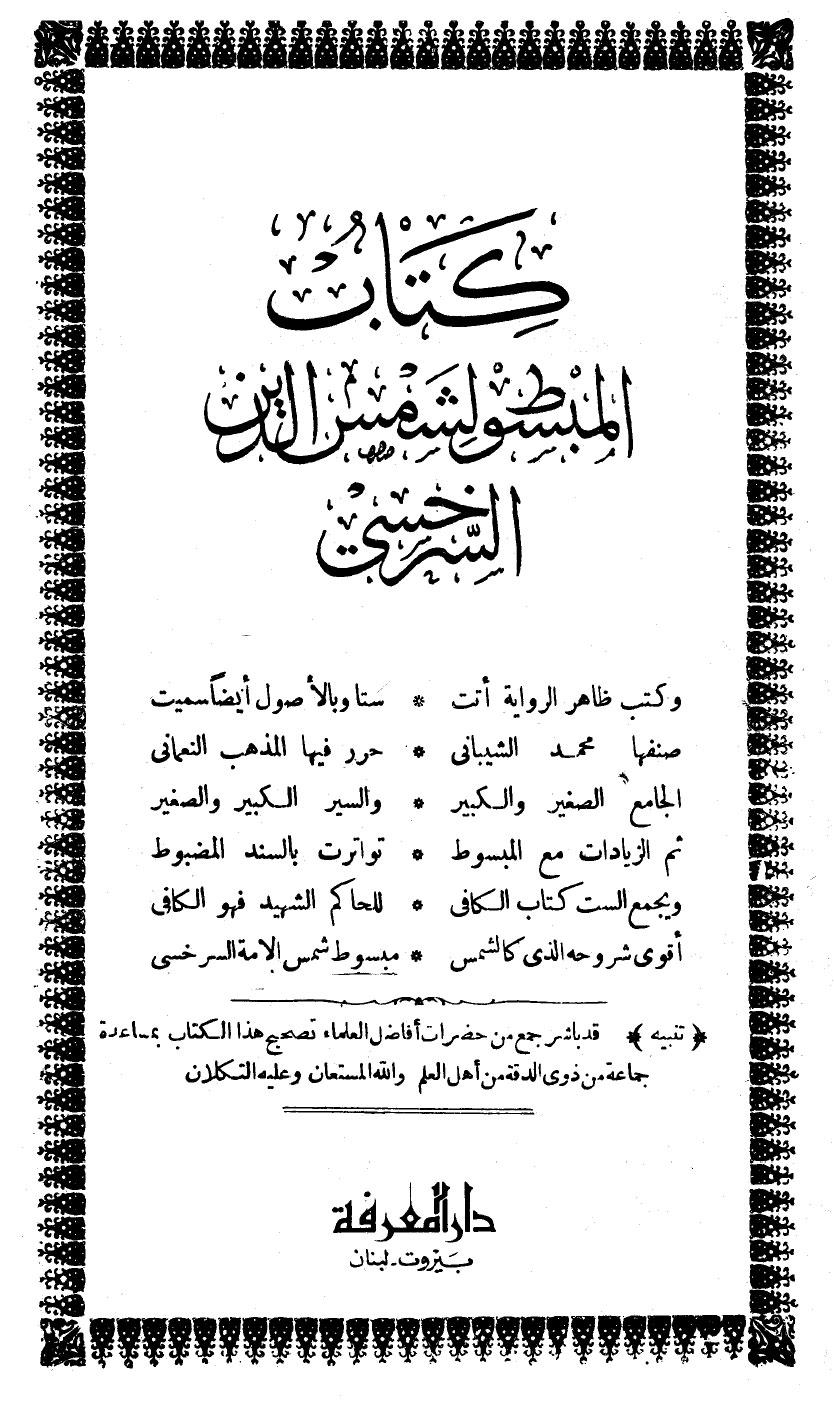 كتاب
المبسوط لشمس الدين
السرخسي
وكتب ظاهر الرواية أتت * ستا وبالأصول أيضاً سميت
صنفها محمد الشيبانى * حرر فيها المذهب النعمانى
الجامع الصغير والكبير * والسير الكبير والصغير
ثم الزيادات مع المبسوط * تواترت بالسند المضبوط
ويجمع الست كتاب الكافى * للحاكم الشهيد فهو الكافى
أقوى شروحه الذى كالشمس * مبسوط شمس الامة السرخسى
﴿ تنبيه ﴾ قد باشر جمع من حضرات أفاضل العلماء تصحيح هذا الكتاب بمساعدة
جماعة من ذوى الدقة من أهل العلم والله المستعان وعليه التكلان
دار المعرفة
بيروت - لبنان